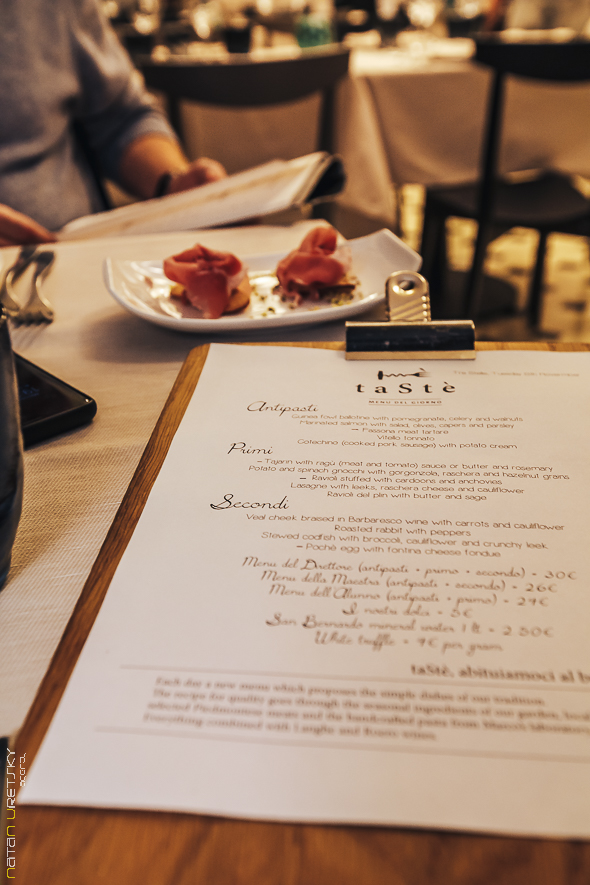 taStè
MENU DEL GIORNO
Antipasti
Guinea fowl ballotine with pomegranate, celery and walnuts
Marinated salmon with salad, olives, capers and parsley
– Fassona meat tartare
Vitello tonnato
Cotechino (cooked pork sausage) with potato cream
Primi
– Tajarin with ragù (meat and tomato) sauce or butter and rosemary
Potato and spinach gnocchi with gorgonzola, raschera and hazelnut grains
– Ravioli stuffed with cardoons and anchovies
Lasagne with leeks, raschera cheese and cauliflower
Ravioli del plin with butter and sage
Secondi
Veal cheek braised in Barbaresco wine with carrots and cauliflower
Roasted rabbit with peppers
Stewed codfish with broccoli, cauliflower and crunchy leek
– Pochè egg with fontina cheese fondue
Menu del Direttore (antipasti + primo + secondo) = 30€
Menu della Maestra (antipasti + secondo) = 26€
Menu dell'Alunno (antipasti + primo) = 24€
I nostri dolci = 5€
San Bernardo mineral water 1 lt = 2.50€
White truffle = 4€ per gram
taStè, abituiamoci al
Each day a new menu which proposes the simple dishes of our tradition.
The recipe for quality goes through the seasonal ingredients of our garden, local
selected Piedmontese meats and the handcrafted pasta from
Everything combined with Langhe and Roero wines.
NATAN URETSKY